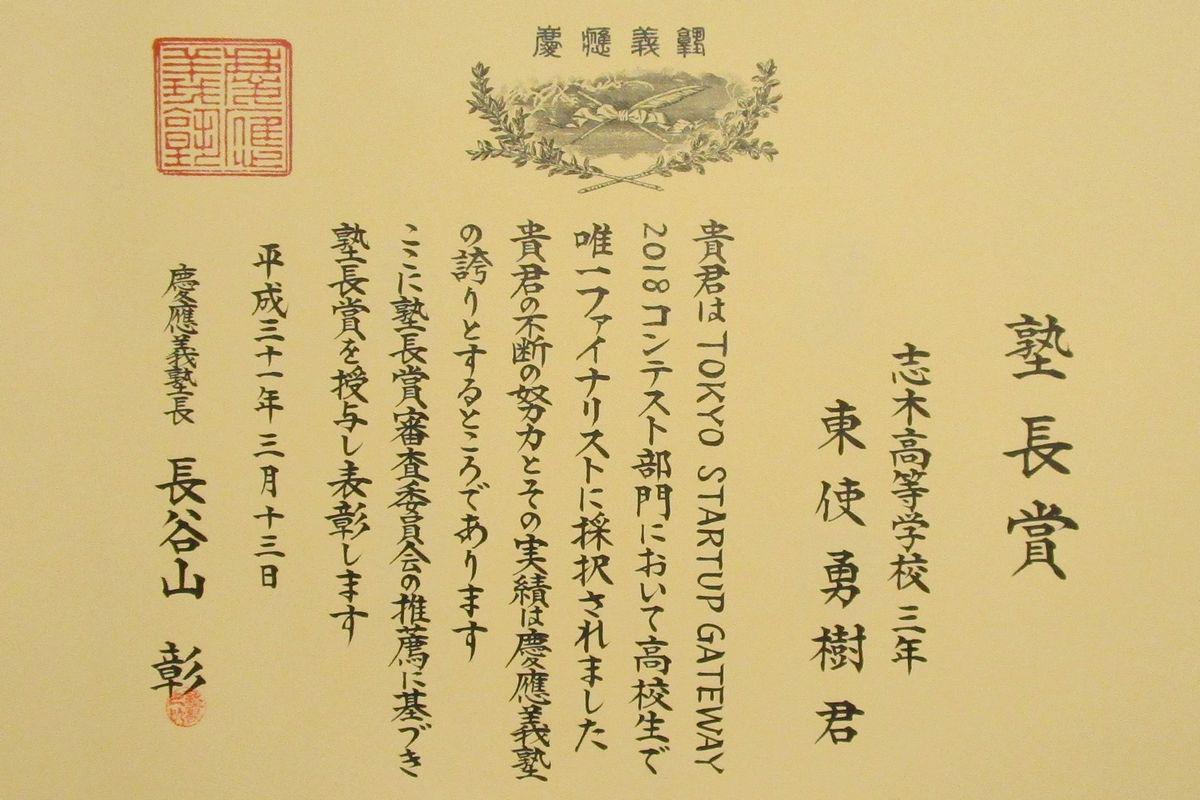 慶應義塾
塾長賞
志木高等学校 三年
東使勇樹君
貴君は TOKYO STARTUP GATEWAY
2018コンテスト部門において高校生で
唯一ファイナリストに採択されました
貴君の不断の努力とその実績は慶應義塾
の誇りとするところであります
ここに塾長賞審査委員会の推薦に基づき
塾長賞を授与し表彰します
平成三十一年三月十三日
慶應義塾長 長谷山 彰
慶應
義塾